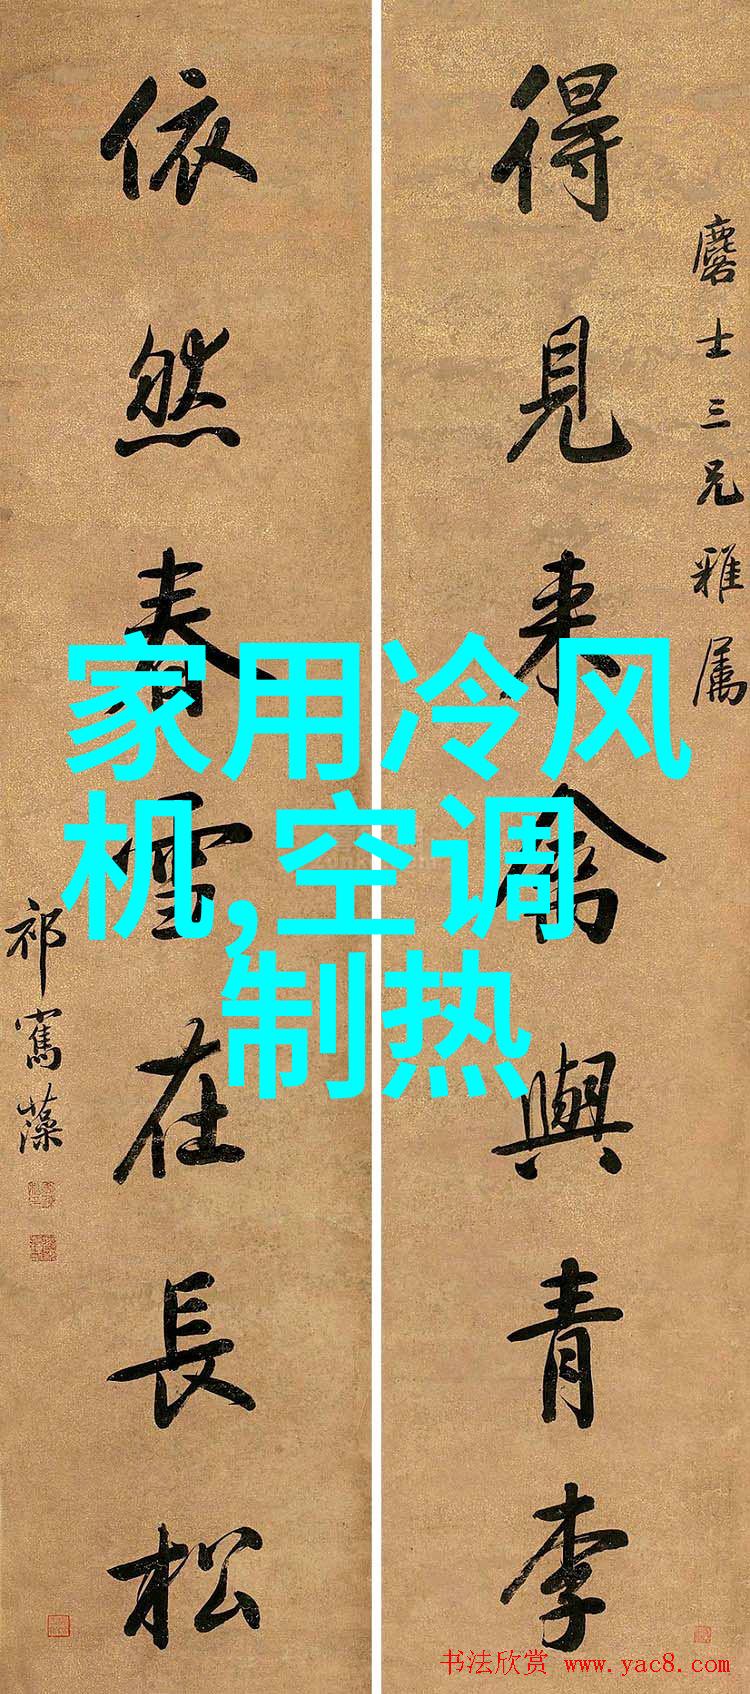 麐士三兄雅属
得見来禽與青李
依然春雪在長松
祁寯藻
家用冷风
机,空调
制热
书法欣赏 www.yac8.com